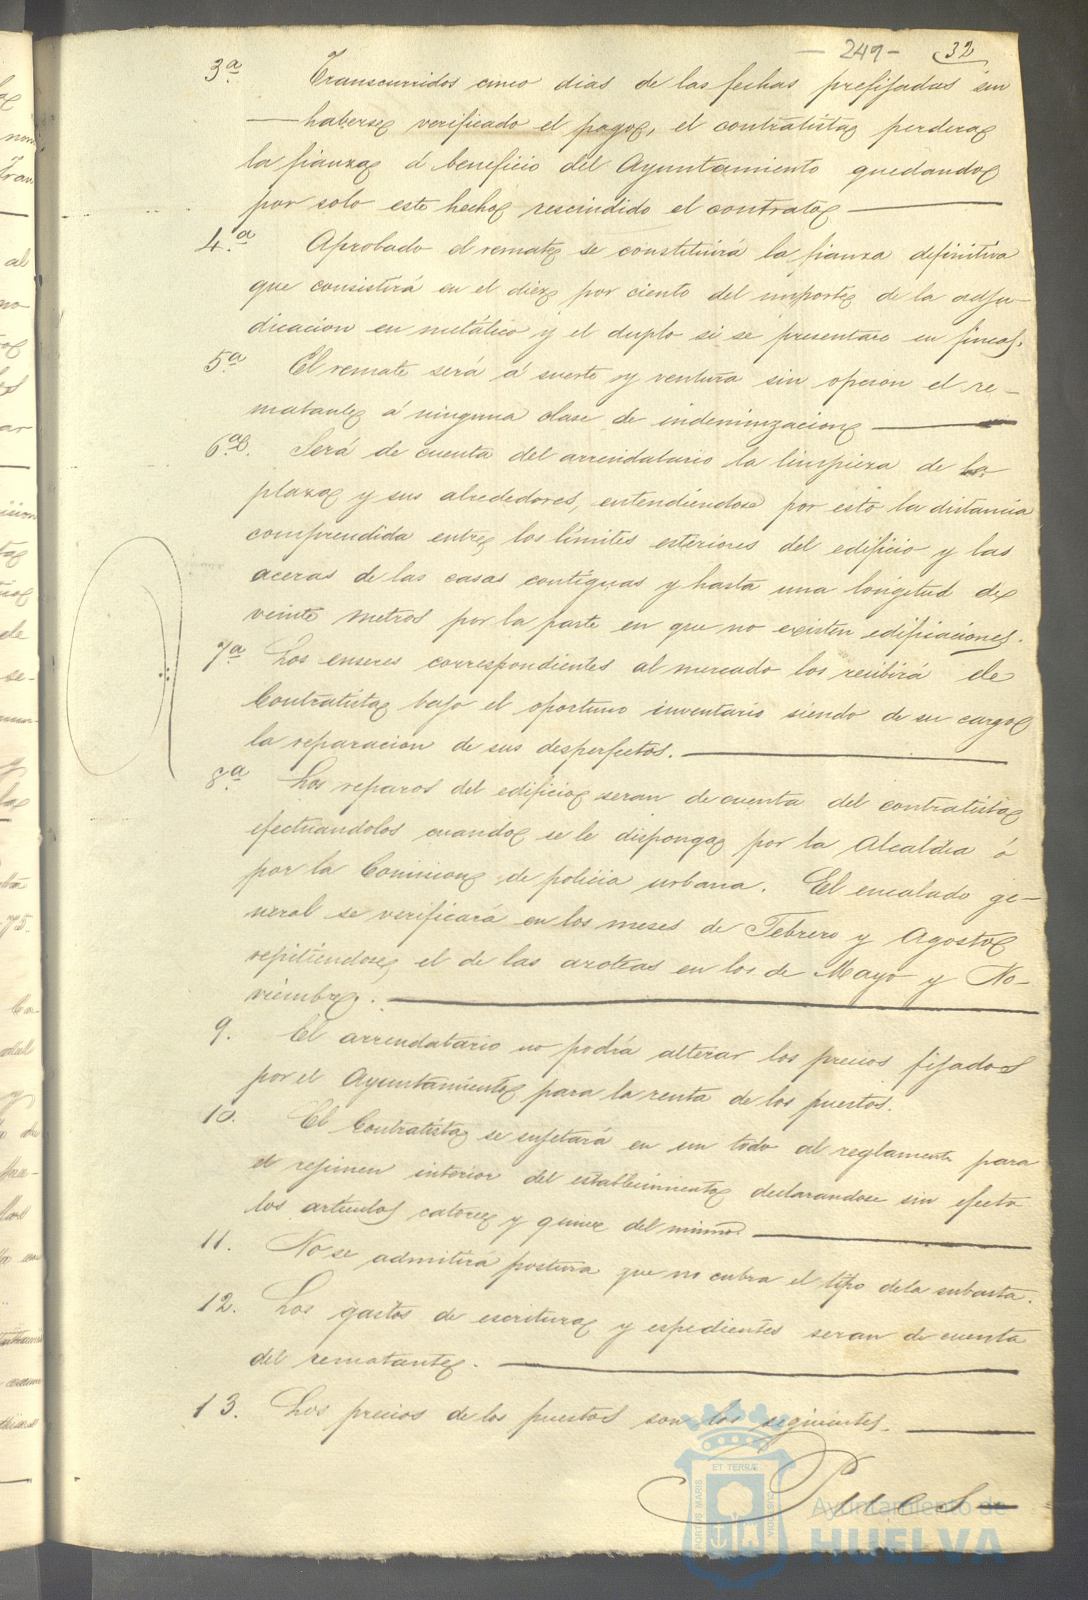 - 249 - 32
3ª Transcurridos cinco dias de las fechas prefijadas sin
haberse verificado el pago, el contratista perdera
la fianza á beneficio del Ayuntamiento quedando
por solo este hecho rescindido el contrato
4ª Aprobado el remate se constituirá la fianza definitiva
que consistirá en el diez por ciento del importe de la adju-
dicacion en metálico y el duplo si se presentare en fincas.
5ª El remate será á suerte y ventura sin opcion el re-
matante á ninguna clase de indemnizacion
6ª. Será de cuenta del arrendatario la limpieza de la
plaza y sus alrededores, entendiendose por esto la distancia
comprendida entre los limites esteriores del edificio y las
aceras de las casas contiguas y hasta una longitud de
veinte metros por la parte en que no existen edificaciones.
7ª Los enseres correspondientes al mercado los recibirá el
Contratista bajo el oportuno inventario siendo de su cargo
la reparacion de sus desperfectos.
8ª Los reparos del edificio seran de cuenta del contratista
efectuandolos cuando se le disponga por la Alcaldia ó
por la Comision de policia urbana. El encalado ge-
neral se verificará en los meses de Febrero y Agosto
repitiendose el de las azoteas en los de Mayo y No-
viembre.
9. El arrendatario no podrá alterar los precios fijados
por el Ayuntamiento para la renta de los puestos.
10. El Contratista se sujetará en un todo al reglamento para
el regimen interior del establecimiento declarandose sin efecto
los articulos catorce y quince del mismo.
11. No se admitirá postura que no cubra el tipo de la subasta.
12. Los gastos de escritura y espedientes seran de cuenta
del rematante.
13. Los precios de los puestos son los siguientes.
ET TERRÆ
PORTUS MARIS
CUSTODIA
Ayuntamiento de
HUELVA